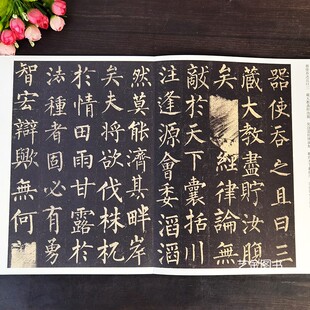 器使吞之且曰三
藏大教盡貯汝腹
矣經律論無
敵於天下囊括川
注逢源會委滔滔
然莫能濟其畔岸
矣夫將欲伐株杌
於情田雨甘露於
法種者固必有勇
智宏辯歟無何
图书